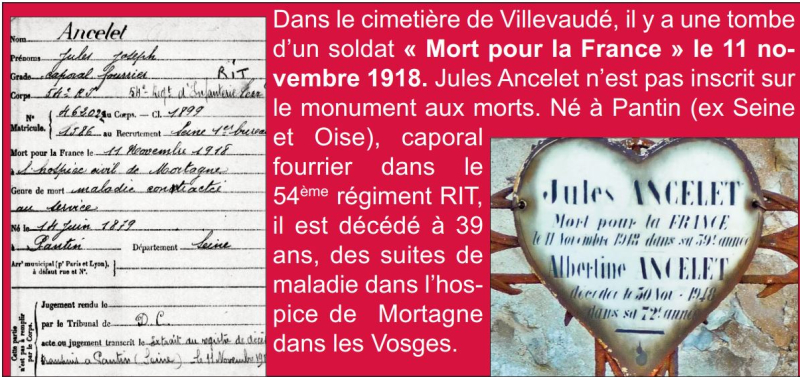 Ancelet
Nom
Prénoms Jules Joseph
Grade caporal fourrier RIT
Corps 54e RT 54e Régt d'Infanterie
N° Matricule. 46202 au Corps. — Cl. 1899
1386 au Recrutement Seine 1er bureau
Mort pour la France le 11 Novembre 1918
à l'hospice civil de Mortagne
Genre de mort maladie contractée
au service
Né le 14 Juin 1879
à Pantin Département Seine
Arrt municipal (pr Paris et Lyon),
à défaut rue et N°.
Cette partie n'est pas à remplir par le Corps.
Jugement rendu le
par le Tribunal de D. C.
acte ou jugement transcrit le Extrait du registre de décès
à Pantin (Seine) le 11 Novembre
Dans le cimetière de Villevaudé, il y a une tombe
d'un soldat « Mort pour la France » le 11 no-
vembre 1918. Jules Ancelet n'est pas inscrit sur
le monument aux morts. Né à Pantin (ex Seine
et Oise), caporal
fourrier dans le
54ème régiment RIT,
il est décédé à 39
ans, des suites de
maladie dans l'hos-
pice de Mortagne
dans les Vosges.
Jules ANCELET
Mort pour la FRANCE
le 11 Novembre 1918 dans sa 39e année
Albertine ANCELET
décédée le 30 Nov - 1948
dans sa 72e année